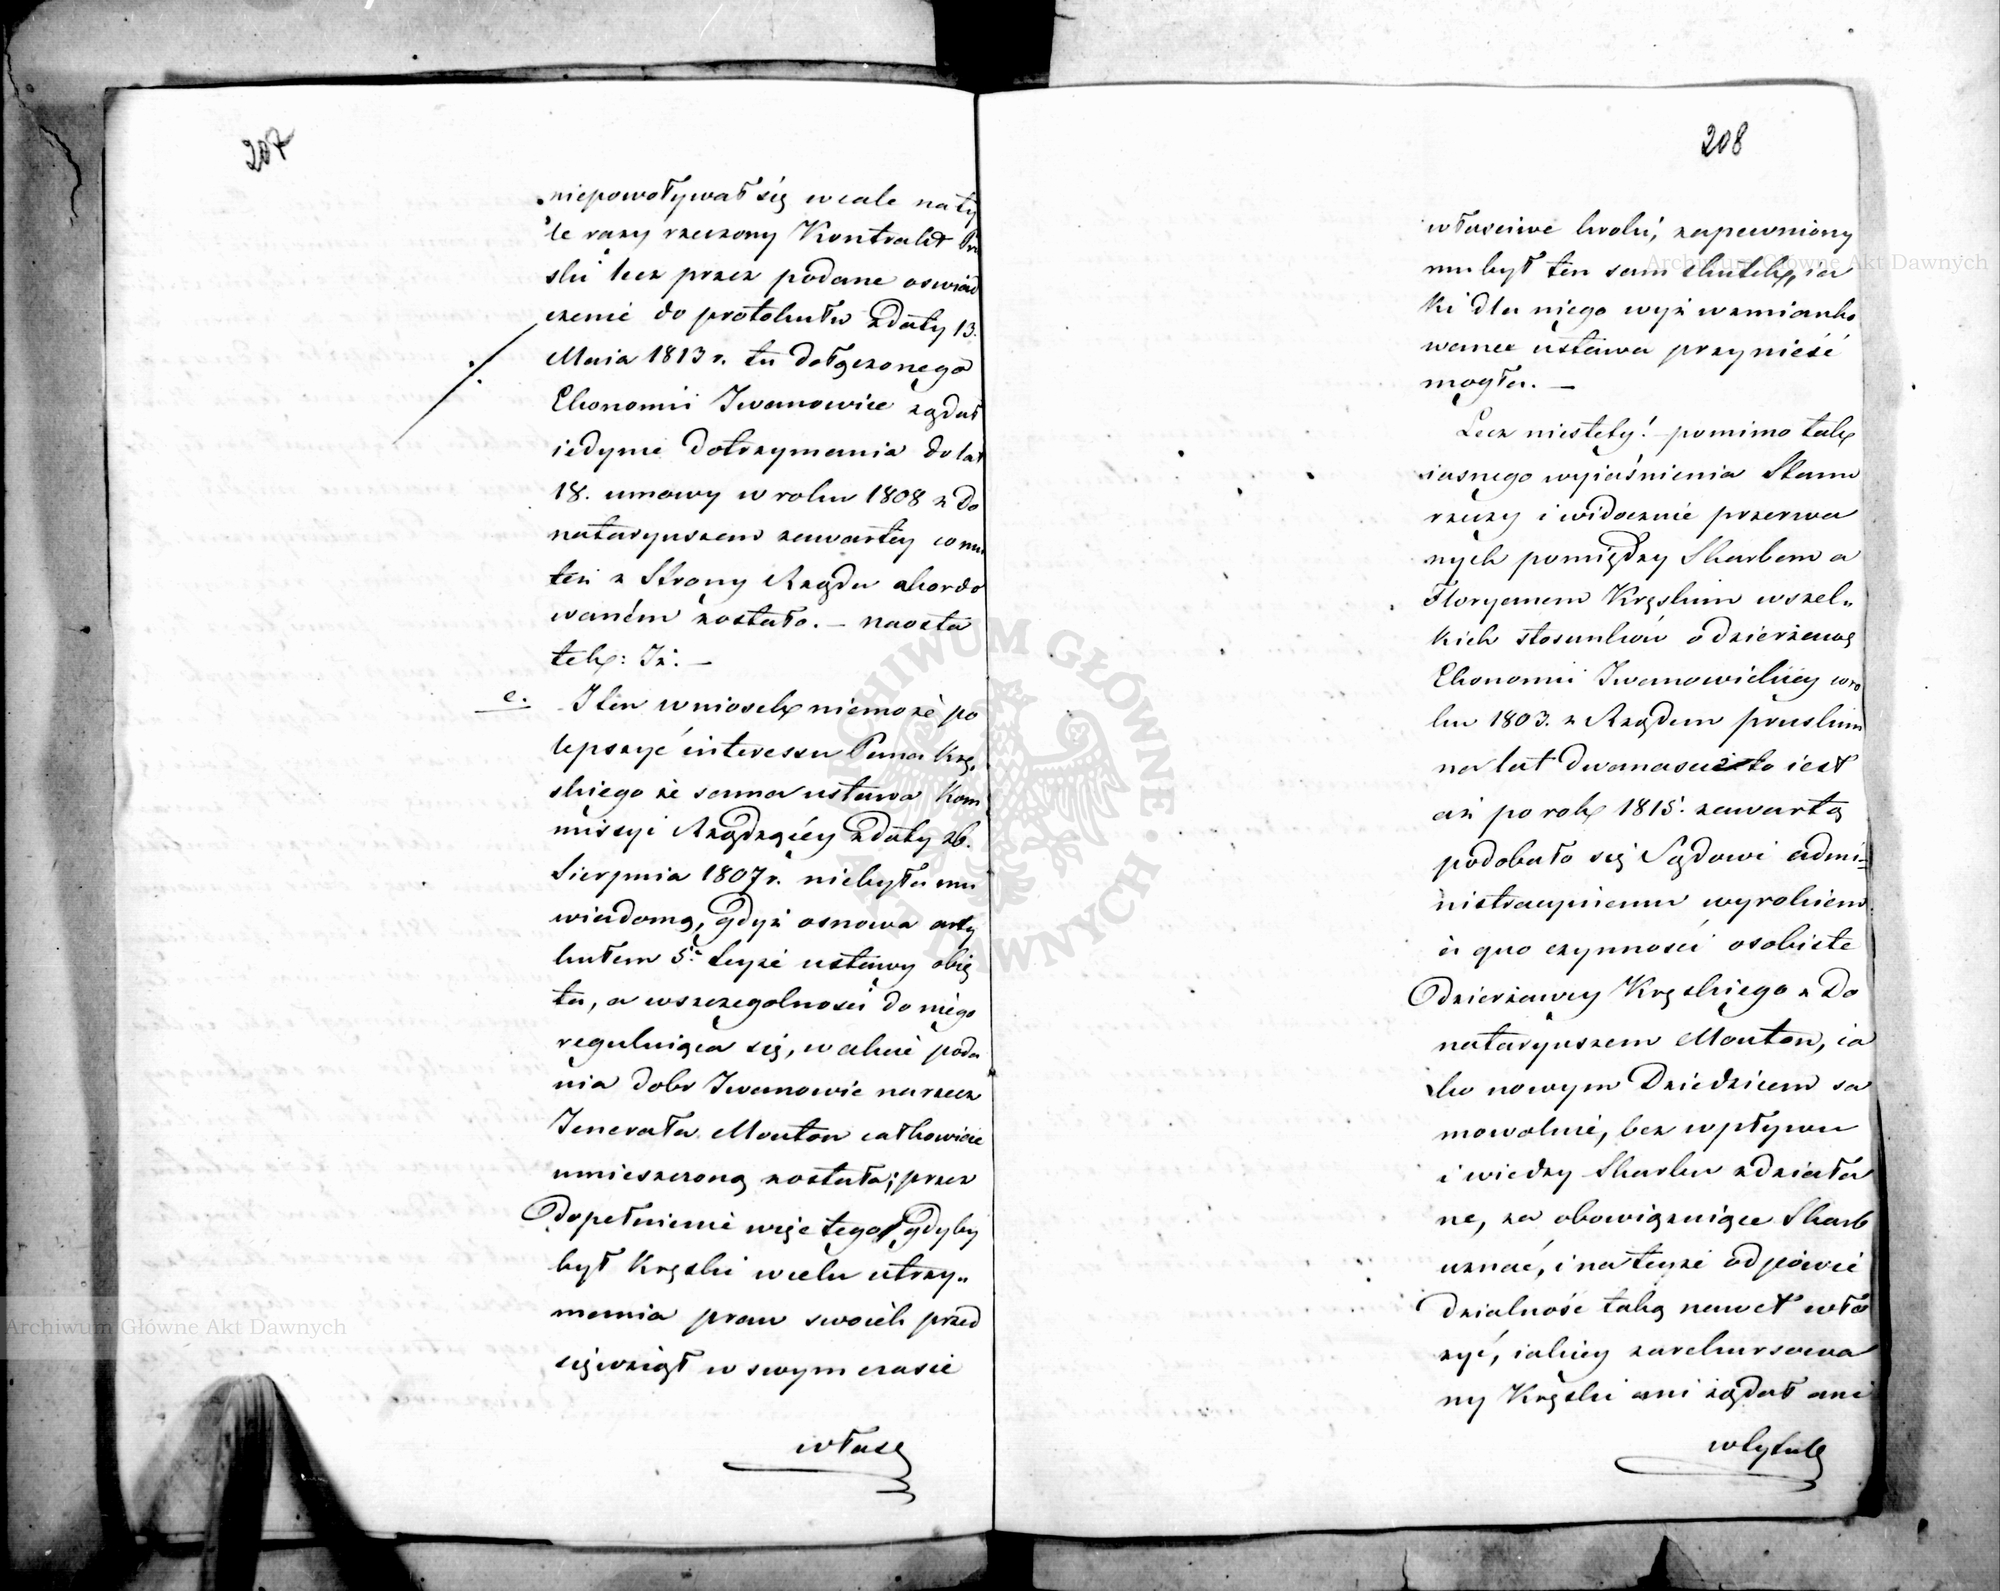 207
niepowoływał się wcale na ty
le razy rzeczony Kontrakt Pru
ski lecz przez podane oswiad
czenie do protokułu z daty 13.
Maia 1813 r. tu dołączonego
Ekonomii Iwanowice żądał
iedynie dotrzymania do lat
18. umowy w roku 1808 z Do
nataryuszem zawartey co mu
też z Strony Rządu akordo
waném zostało. – naosta
tek: Iż. –
e. I ten wniosek niemoże po
lepszyć interessu Pana Krę,
skiego że sama ustawa Kom
missyi Rządzącéy z daty 26.
Sierpnia 1807 r. niebyła mu
wiadomą, gdyż osnowa arty
kułem 5. teyże ustawy obię
ta, a wszczegolnosci do niego
reguluiąca się, w akcie poda
nia dobr Iwanowic na rzecz
Jenerała Mouton całkowicie
umieszczoną została; przez
Dopełnienie więc tego gdyby
był Kręski w celu utrzy„
mania praw swoich przed
sięwziął w swym czasie
właśc
208
właściwe kroki, zapewniony
mu był ten sam skutek, ia
ki dla niego wyż wzmianko
wana ustawa przynieść
mogła. –
Lecz niestety! pomimo tak
iasnego wyiaśnienia Stanu
rzeczy i widocznie przerwa
nych pomiędzy Skarbem a
Floryanem Kręskim wszel„
kich stosunków o dzierżawę
Ekonomii Iwanowickiéy w ro
ku 1803. z Rządem pruskim
na lat dwanaście to iest
aż po rok 1815. zawartą
podobało się Sądowi admi=
nistracyinemu wyrokiem
à quo czynności osobiste
Dzierżawcy Kręskiego z Do
nataryuszem Mouton, ia
ko nowym Dziedzicem sa
mowolnie, bez wpływu
i wiedzy Skarbu zdziała
ne, za obowiązuiące Skarb
uznać, i na teyże odpowie
dzialność taką nawet wło
żyć, iakiey zarekursowa
ny Kręski ani żądał ani